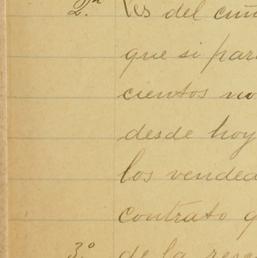 2.ª es del cin
que si par
cientos no
desde hoy
los vended
contrato q
3.º de la resc